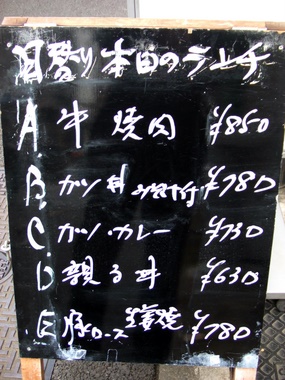 日替り 本日のランチ
A 牛焼肉 ¥850
B. カツ丼 みそ汁付 ¥780
C. カツ・カレー ¥730
D 親子丼 ¥630
E 豚ロース生姜焼 ¥780